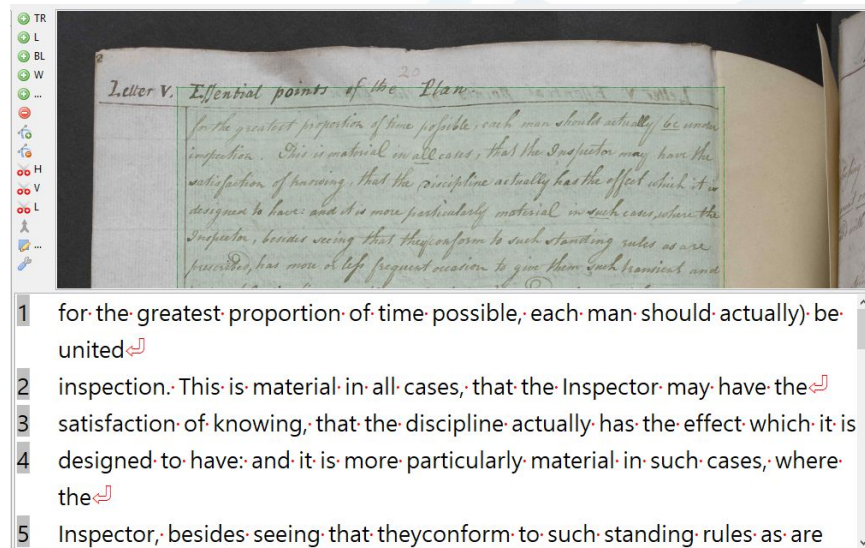 TR
L
BL
W
...
H
V
L
...
2
20
Letter V. Essential points of the Plan.
for the greatest proportion of time possible, each man should actually be under
inspection. This is material in all cases, that the Inspector may have the
satisfaction of knowing, that the discipline actually has the effect which it is
designed to have: and it is more particularly material in such cases, where the
Inspector, besides seeing that they conform to such standing rules as are
prescribed, has more or less frequent occasion to give them such transient and
1 for the greatest proportion of time possible, each man should actually) be
united
2 inspection. This is material in all cases, that the Inspector may have the
3 satisfaction of knowing, that the discipline actually has the effect which it is
4 designed to have: and it is more particularly material in such cases, where
the
5 Inspector, besides seeing that theyconform to such standing rules as are